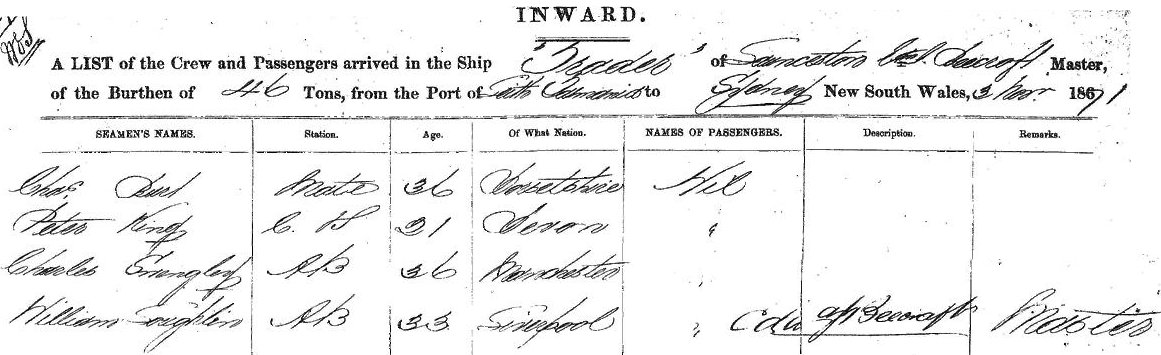 INWARD.
A LIST of the Crew and Passengers arrived in the Ship "Trader" of Launceston Master,
of the Burthen of 46 Tons, from the Port of Tasmania to Sydney New South Wales, 3 Novr. 1871
SEAMEN'S NAMES. Station. Age. Of What Nation. NAMES OF PASSENGERS. Description. Remarks.
Chas. Mate 36 Dorsetshire Nil
Peter King 31 Devon "
Charles AB 36 Manchester
William Loughlin AB 33 Liverpool " Beecroft Master